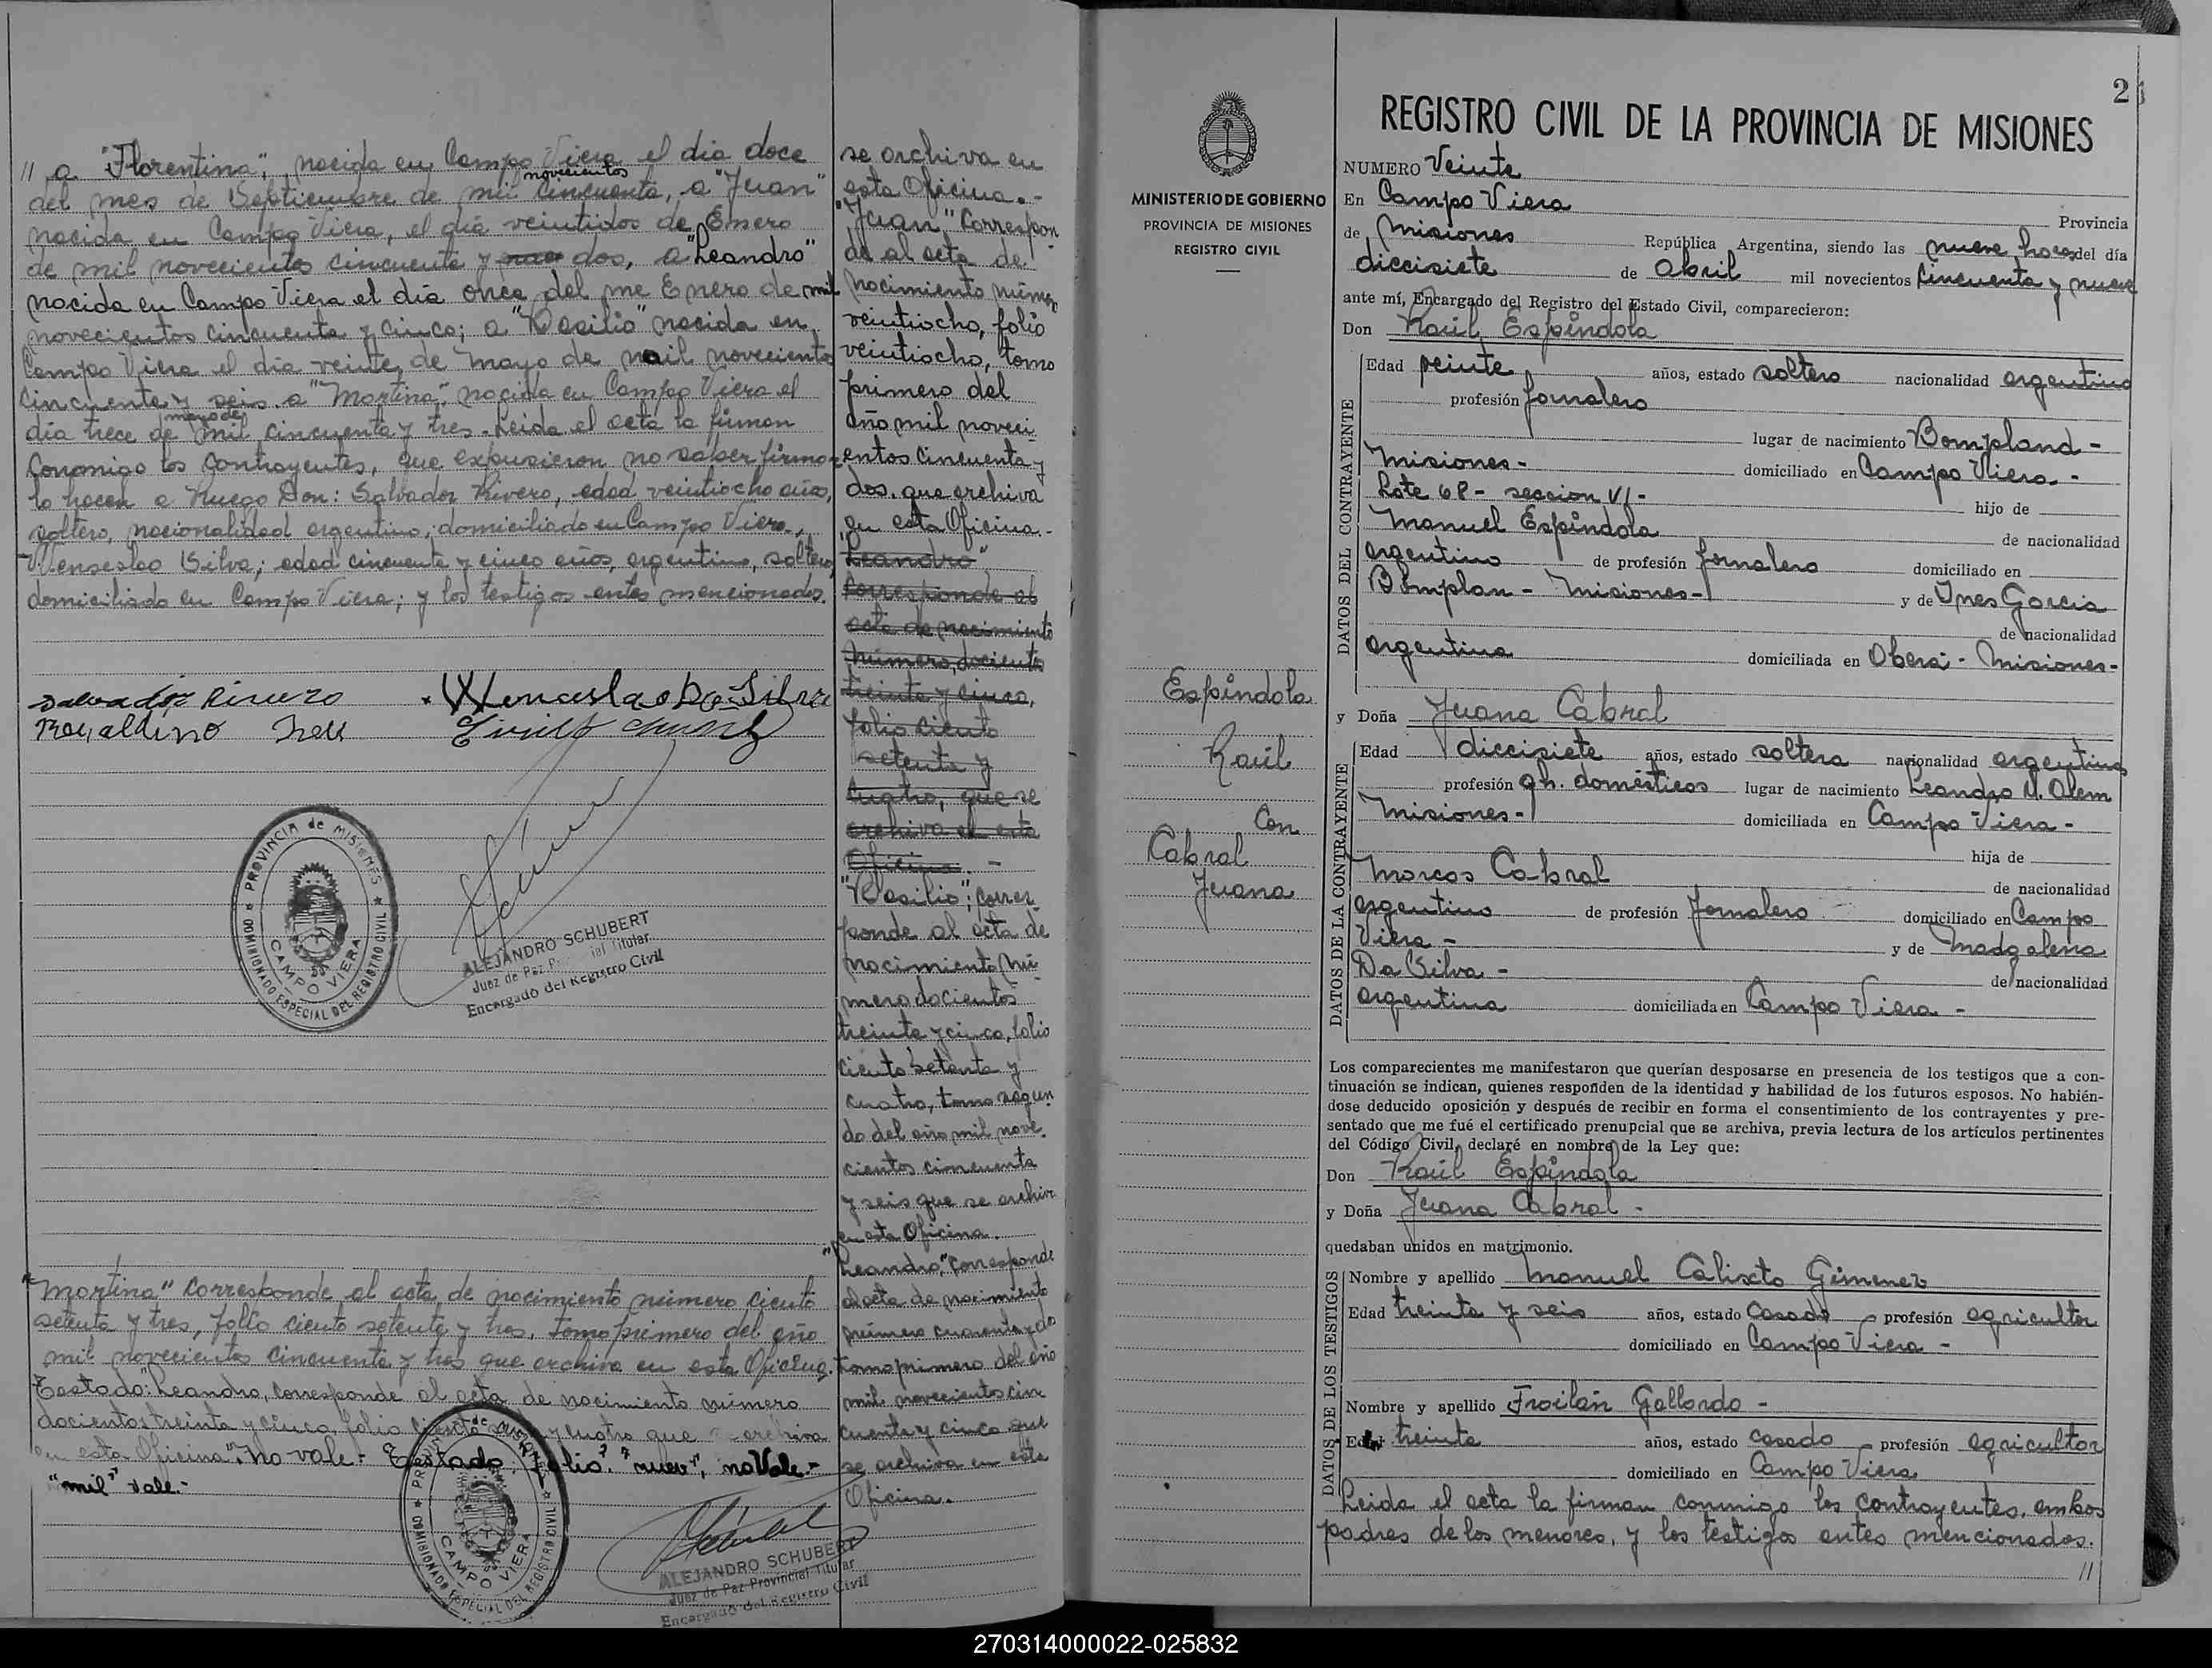 // a "Florentina", nacida en Campo Viera el dia doce
del mes de Septiembre de mil novecientos cincuenta, a "Juan"
nacida en Campo Viera, el dia veintidos de Enero
de mil novecientos cincuenta y dos, a "Leandro"
nacida en Campo Viera el dia once del me Enero de mil
novecientos cincuenta y cinco; a "Basilio" nacida en
Campo Viera el dia veinte de mayo de mil novecientos
cincuenta y seis a "Martina", nacida en Campo Viera el
dia trece de mayo de mil cincuenta y tres. Leida el acta la firman
conmigo los contrayentes, que expusieron no saber firmar
lo hacen a Ruego Don: Salvador Rivero, edad veintiocho años,
soltero, nacionalidad argentino, domiciliado en Campo Viera,
Wenseslao Silva; edad cincuenta y cinco años, argentino, soltero,
domiciliado en Campo Viera; y los testigos antes mencionados.
Salvador Rivero
Wenceslao Da Silva
PROVINCIA de MISIONES
COMISIONADO ESPECIAL DEL REGISTRO CIVIL
CAMPO VIERA
ALEJANDRO SCHUBERT
Juez de Paz P ial Titular
Encargado del Registro Civil
"Martina" corresponde al acta de nacimiento número ciento
setenta y tres, folio ciento setenta y tres, tomo primero del año
mil novecientos cincuenta y tres que archiva en esta Oficina.
Testado: Leandro, corresponde al acta de nacimiento número
docientos treinta y cinco, folio ciento y cuatro que archiva
en esta Oficina", no vale.- Testado: "folio", "nuev", no Vale.-
"mil" vale.-
PROVINCIA de MISIONES
COMISIONADO ESPECIAL DEL REGISTRO CIVIL
CAMPO VIERA
ALEJANDRO SCHUBERT
Juez de Paz Provincial Titular
Encargado del Registro Civil
se archiva en
esta Oficina.-
"Juan" correspon
de al acta de
nacimiento núme
veintiocho, folio
veintiocho, tomo
primero del
año mil noveci
entos cincuenta y
dos, que archiva
en esta Oficina.-
"Leandro"
corresponde al
acta de nacimiento
número, docientos
treinta y cinco,
folio ciento
setenta y
cuatro, que se
archiva en esta
Oficina.-
"Basilio"; corres
ponde al acta de
nacimiento nú
mero docientos
treinta y cinco, folio
ciento setenta y
cuatro, tomo segun
do del año mil nove
cientos cincuenta
y seis que se archiva
en esta Oficina.
"Leandro," corresponde
al acta de nacimiento
número cuarenta y do
tomo primero del año
mil novecientos cin
cuenta y cinco que
se archiva en esta
Oficina.
MINISTERIO DE GOBIERNO
PROVINCIA DE MISIONES
REGISTRO CIVIL
Espíndola
Raúl
Con
Cabral
Juana
2
REGISTRO CIVIL DE LA PROVINCIA DE MISIONES
NUMERO Veinte
En Campo Viera Provincia
de Misiones República Argentina, siendo las nueve horas del día
diecisiete de Abril mil novecientos cincuenta y nueve
ante mí, Encargado del Registro del Estado Civil, comparecieron:
Don Raúl Espíndola
DATOS DEL CONTRAYENTE
Edad veinte años, estado soltero nacionalidad argentino
profesión Jornalero
lugar de nacimiento Bompland -
Misiones - domiciliado en Campo Viera. -
Lote 68 - seccion VI - hijo de
Manuel Espíndola de nacionalidad
argentino de profesión Jornalero domiciliado en
Bomplan - Misiones - y de Ines Garcia
de nacionalidad
argentina domiciliada en Oberá - Misiones -
y Doña Juana Cabral
DATOS DE LA CONTRAYENTE
Edad diecisiete años, estado soltera nacionalidad argentina
profesión qh. domésticos lugar de nacimiento Leandro N. Alem
Misiones - domiciliada en Campo Viera -
hija de
Marcos Cabral de nacionalidad
argentino de profesión Jornalero domiciliado en Campo
Viera - y de Madgalena
Da Silva - de nacionalidad
argentina domiciliada en Campo Viera -
Los comparecientes me manifestaron que querían desposarse en presencia de los testigos que a con-
tinuación se indican, quienes responden de la identidad y habilidad de los futuros esposos. No habién-
dose deducido oposición y después de recibir en forma el consentimiento de los contrayentes y pre-
sentado que me fué el certificado prenupcial que se archiva, previa lectura de los artículos pertinentes
del Código Civil, declaré en nombre de la Ley que:
Don Raúl Espíndola
y Doña Juana Cabral -
quedaban unidos en matrimonio.
DATOS DE LOS TESTIGOS
Nombre y apellido Manuel Calixto Gimenez
Edad treinta y seis años, estado casado profesión agricultor
domiciliado en Campo Viera -
Nombre y apellido Froilán Gallardo -
Edad treinta años, estado casado profesión agricultor
domiciliado en Campo Viera
Leida el acta la firman conmigo los contrayentes, ambos
padres de los menores, y los testigos antes mencionados.
//
270314000022-025832